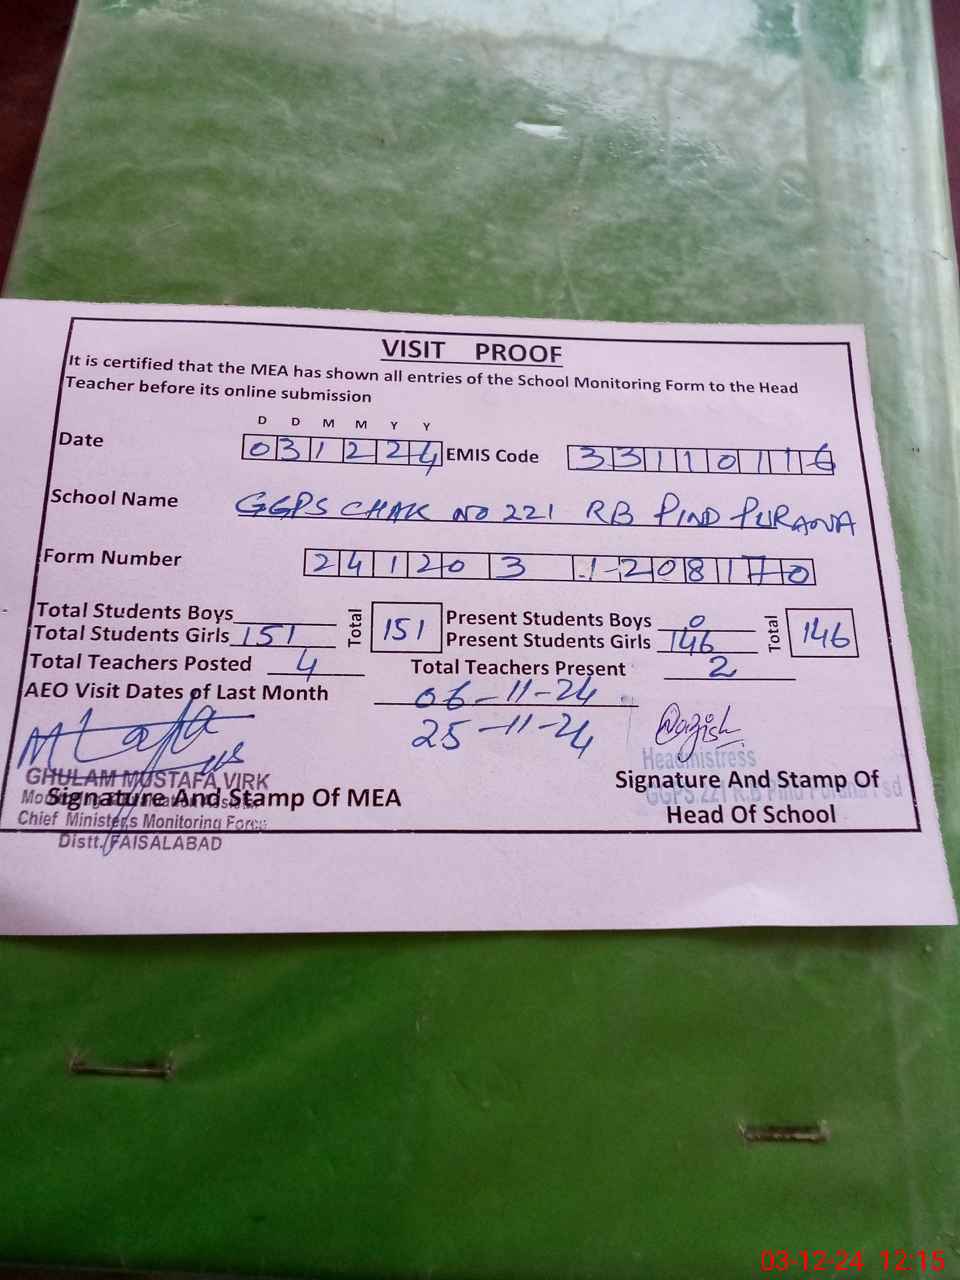 VISIT PROOF
It is certified that the MEA has shown all entries of the School Monitoring Form to the Head
Teacher before its online submission
D D M M Y Y
Date 031224 EMIS Code 33110116
School Name GGPS CHAK NO 221 RB PIND PURANA
Form Number 241203 1208170
Total Students Boys Total 151 Present Students Boys 0 Total 146
Total Students Girls 151 Present Students Girls 146
Total Teachers Posted 4 Total Teachers Present 2
AEO Visit Dates of Last Month 06-11-24
25-11-24
Headmistress
GHULAM MUSTAFA VIRK
Signature And Stamp Of MEA
Signature And Stamp Of
GGPS 221 R.B Pind Purana Fsd
Head Of School
Chief Minister,s Monitoring Force
Distt. FAISALABAD
03-12-24 12:15